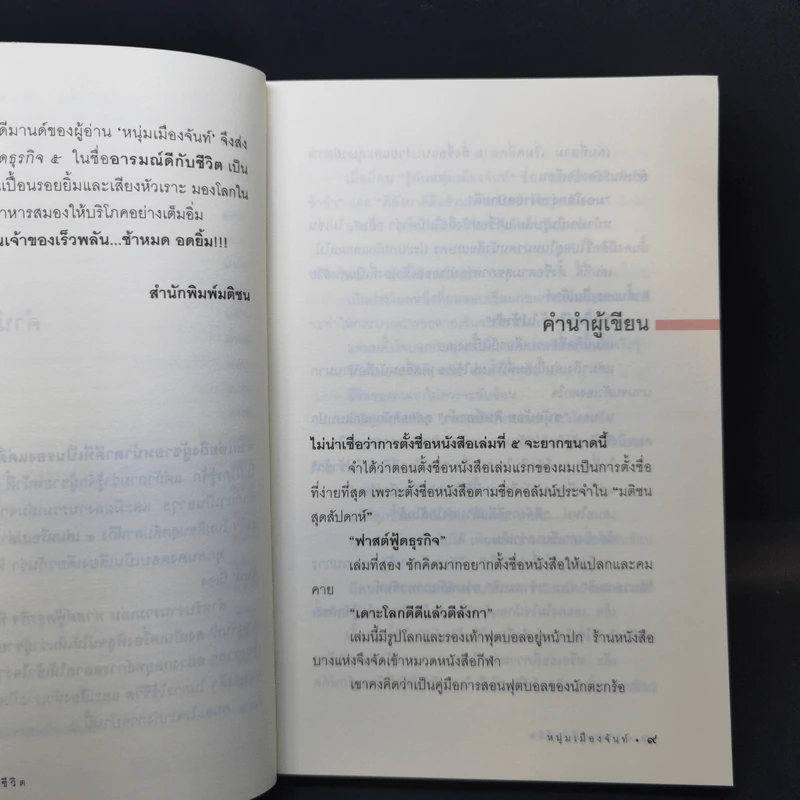 ดีมานด์ของผู้อ่าน ‘หนุ่มเมืองจันท์’ จึงส่ง
ดธุรกิจ ๕ ในชื่ออารมณ์ดีกับชีวิต เป็น
เปื้อนรอยยิ้มและเสียงหัวเราะ มองโลกใน
าหารสมองให้บริโภคอย่างเต็มอิ่ม
นเจ้าของเร็วพลัน...ช้าหมด อดยิ้ม!!!
สำนักพิมพ์มติชน
ชีวิต
คำนำผู้เขียน
ไม่น่าเชื่อว่าการตั้งชื่อหนังสือเล่มที่ ๕ จะยากขนาดนี้
จำได้ว่าตอนตั้งชื่อหนังสือเล่มแรกของผมเป็นการตั้งชื่อ
ที่ง่ายที่สุด เพราะตั้งชื่อหนังสือตามชื่อคอลัมน์ประจำใน “มติชน
สุดสัปดาห์”
“ฟาสต์ฟู้ดธุรกิจ”
เล่มที่สอง ชักคิดมากอยากตั้งชื่อหนังสือให้แปลกและคม
คาย
“เดาะโลกดีดีแล้วตีลังกา”
เล่มนี้มีรูปโลกและรองเท้าฟุตบอลอยู่หน้าปก ร้านหนังสือ
บางแห่งจึงจัดเข้าหมวดหนังสือกีฬา
เขาคงคิดว่าเป็นคู่มือการสอนฟุตบอลของนักตะกร้อ
หนุ่มเมืองจันท์ • ๙